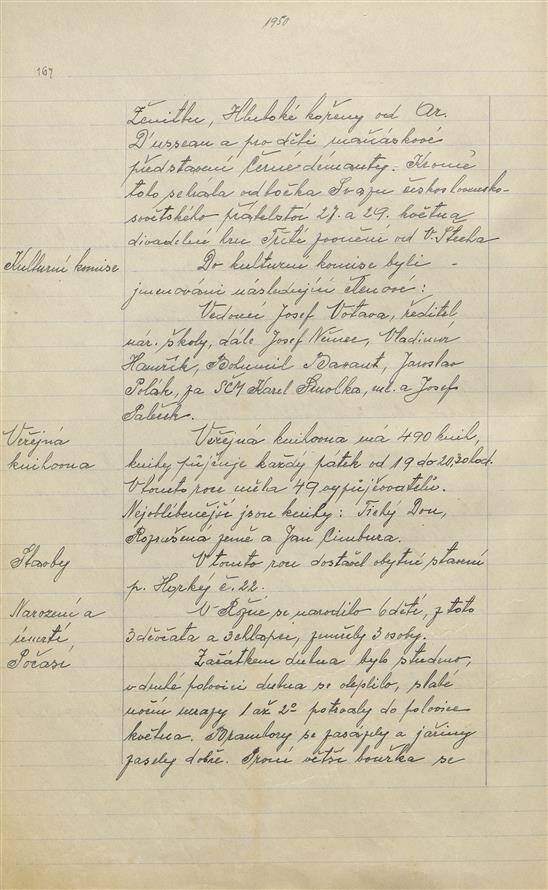 1950
167
Ženitbu, Hluboké kořeny od Ar.
D'usseau a pro děti maňáskové
představení Černé démanty. Kromě
toho sehrála odbočka Svazu československo-
sovětského přátelství 27. a 29. května
divadelní hru Třetí zvonění od V. Štecha
Kulturní komise
Do kulturní komise byli
jmenováni následující členové:
Vedoucí Josef Votava, ředitel
nár. školy, dále Josef Němec, Vladimír
Bohumil Jaroslav
Polák, za SČM Karel Smolka, ml. a Josef
Veřejná
knihovna
Veřejná knihovna má 490 knih,
knihy půjčuje každý pátek od 19 do 20,30 hod.
V tomto roce měla 49 vypůjčovatelů.
Nejoblíbenější jsou knihy: Tichý Don,
Rozrušená země a Jan Cimbura.
Stavby
V tomto roce dostavěl obytné stavení
p. č. 22.
Narození a
úmrtí
V se narodilo 6 dětí, z toho
3 děvčata a 3 chlapci, zemřely 3 osoby.
Počasí
Začátkem dubna bylo studeno,
v druhé polovici dubna se oteplilo, slabé
noční mrazy 1 až 2° potrvaly do polovice
května. Brambory se zasázely a jařiny
zasely dobře. První větší bouřka se